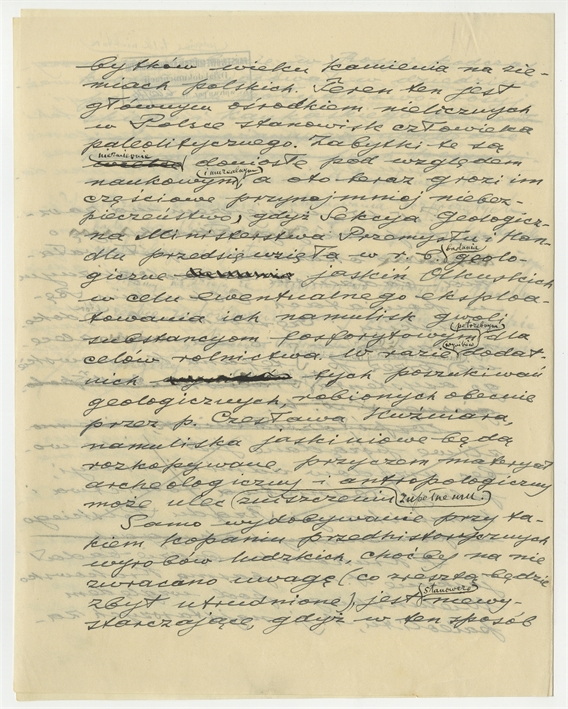 bytków wieku kamienia na zie-
miach polskich. Teren ten jest
głównym ośrodkiem nielicznych
w Polsce stanowisk człowieka
paleolitycznego. Zabytki te są
niesłychanie
doniosłe pod względem
i muzealnym
naukowym, a oto teraz grozi im
częściowe przynajmniej niebez-
pieczeństwo, gdyż Sekcja Geologicz-
na Ministerstwa Przemysłu i Han-
dlu przedsięwzięła w r. b. geolo-
badania
giczne jaskiń Olkuskich
w celu ewentualnego eksploa-
towania ich namulisk gwoli
substancyom fosforytowym dla
potrzebnym
celów rolnictwa. W razie dodat-
wyników
nich tych poszukiwań
geologicznych, robionych obecnie
przez p. Czesława Kuźniara,
namuliska jaskiniowe będą
rozkopywane, przyczem materyał
archeologiczny i antropologiczny
może uledz zniszczeniu zupełnemu.
Samo wydobywanie przy ta-
kiem kopaniu przedhistorycznych
wyrobów ludzkich, choćby na nie
zwracano uwagę (co zresztą będzie
zbyt utrudnione), jest niewy-
stanowczo
starczające, gdyż w ten sposób